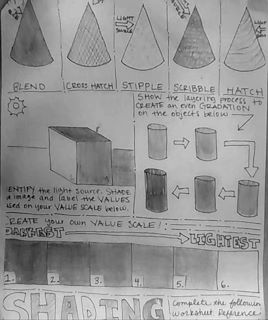 LIGHT
SOURCE
BLEND
CROSS HATCH
STIPPLE
SCRIBBLE
HATCH
SHOW the layering process to
CREATE an even GRADATION
on the objects below
ENTIFY the light source. SHADE
image and label the VALUES
sed on your VALUE SCALE below.
REATE your own VALUE SCALE!
DARKEST
LIGHTEST
1.
2.
3.
4.
5.
6.
SHADING
Complete the following
Worksheet Reference